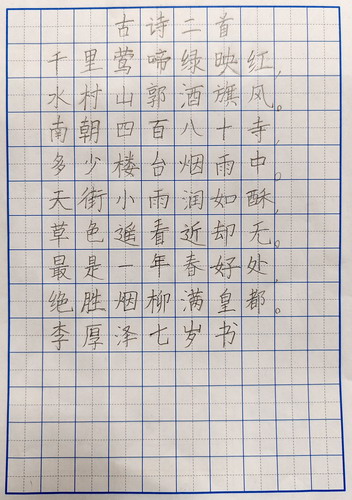 古诗二首
千里莺啼绿映红,
水村山郭酒旗风。
南朝四百八十寺,
多少楼台烟雨中。
天街小雨润如酥,
草色遥看近却无。
最是一年春好处,
绝胜烟柳满皇都。
李厚泽七岁书